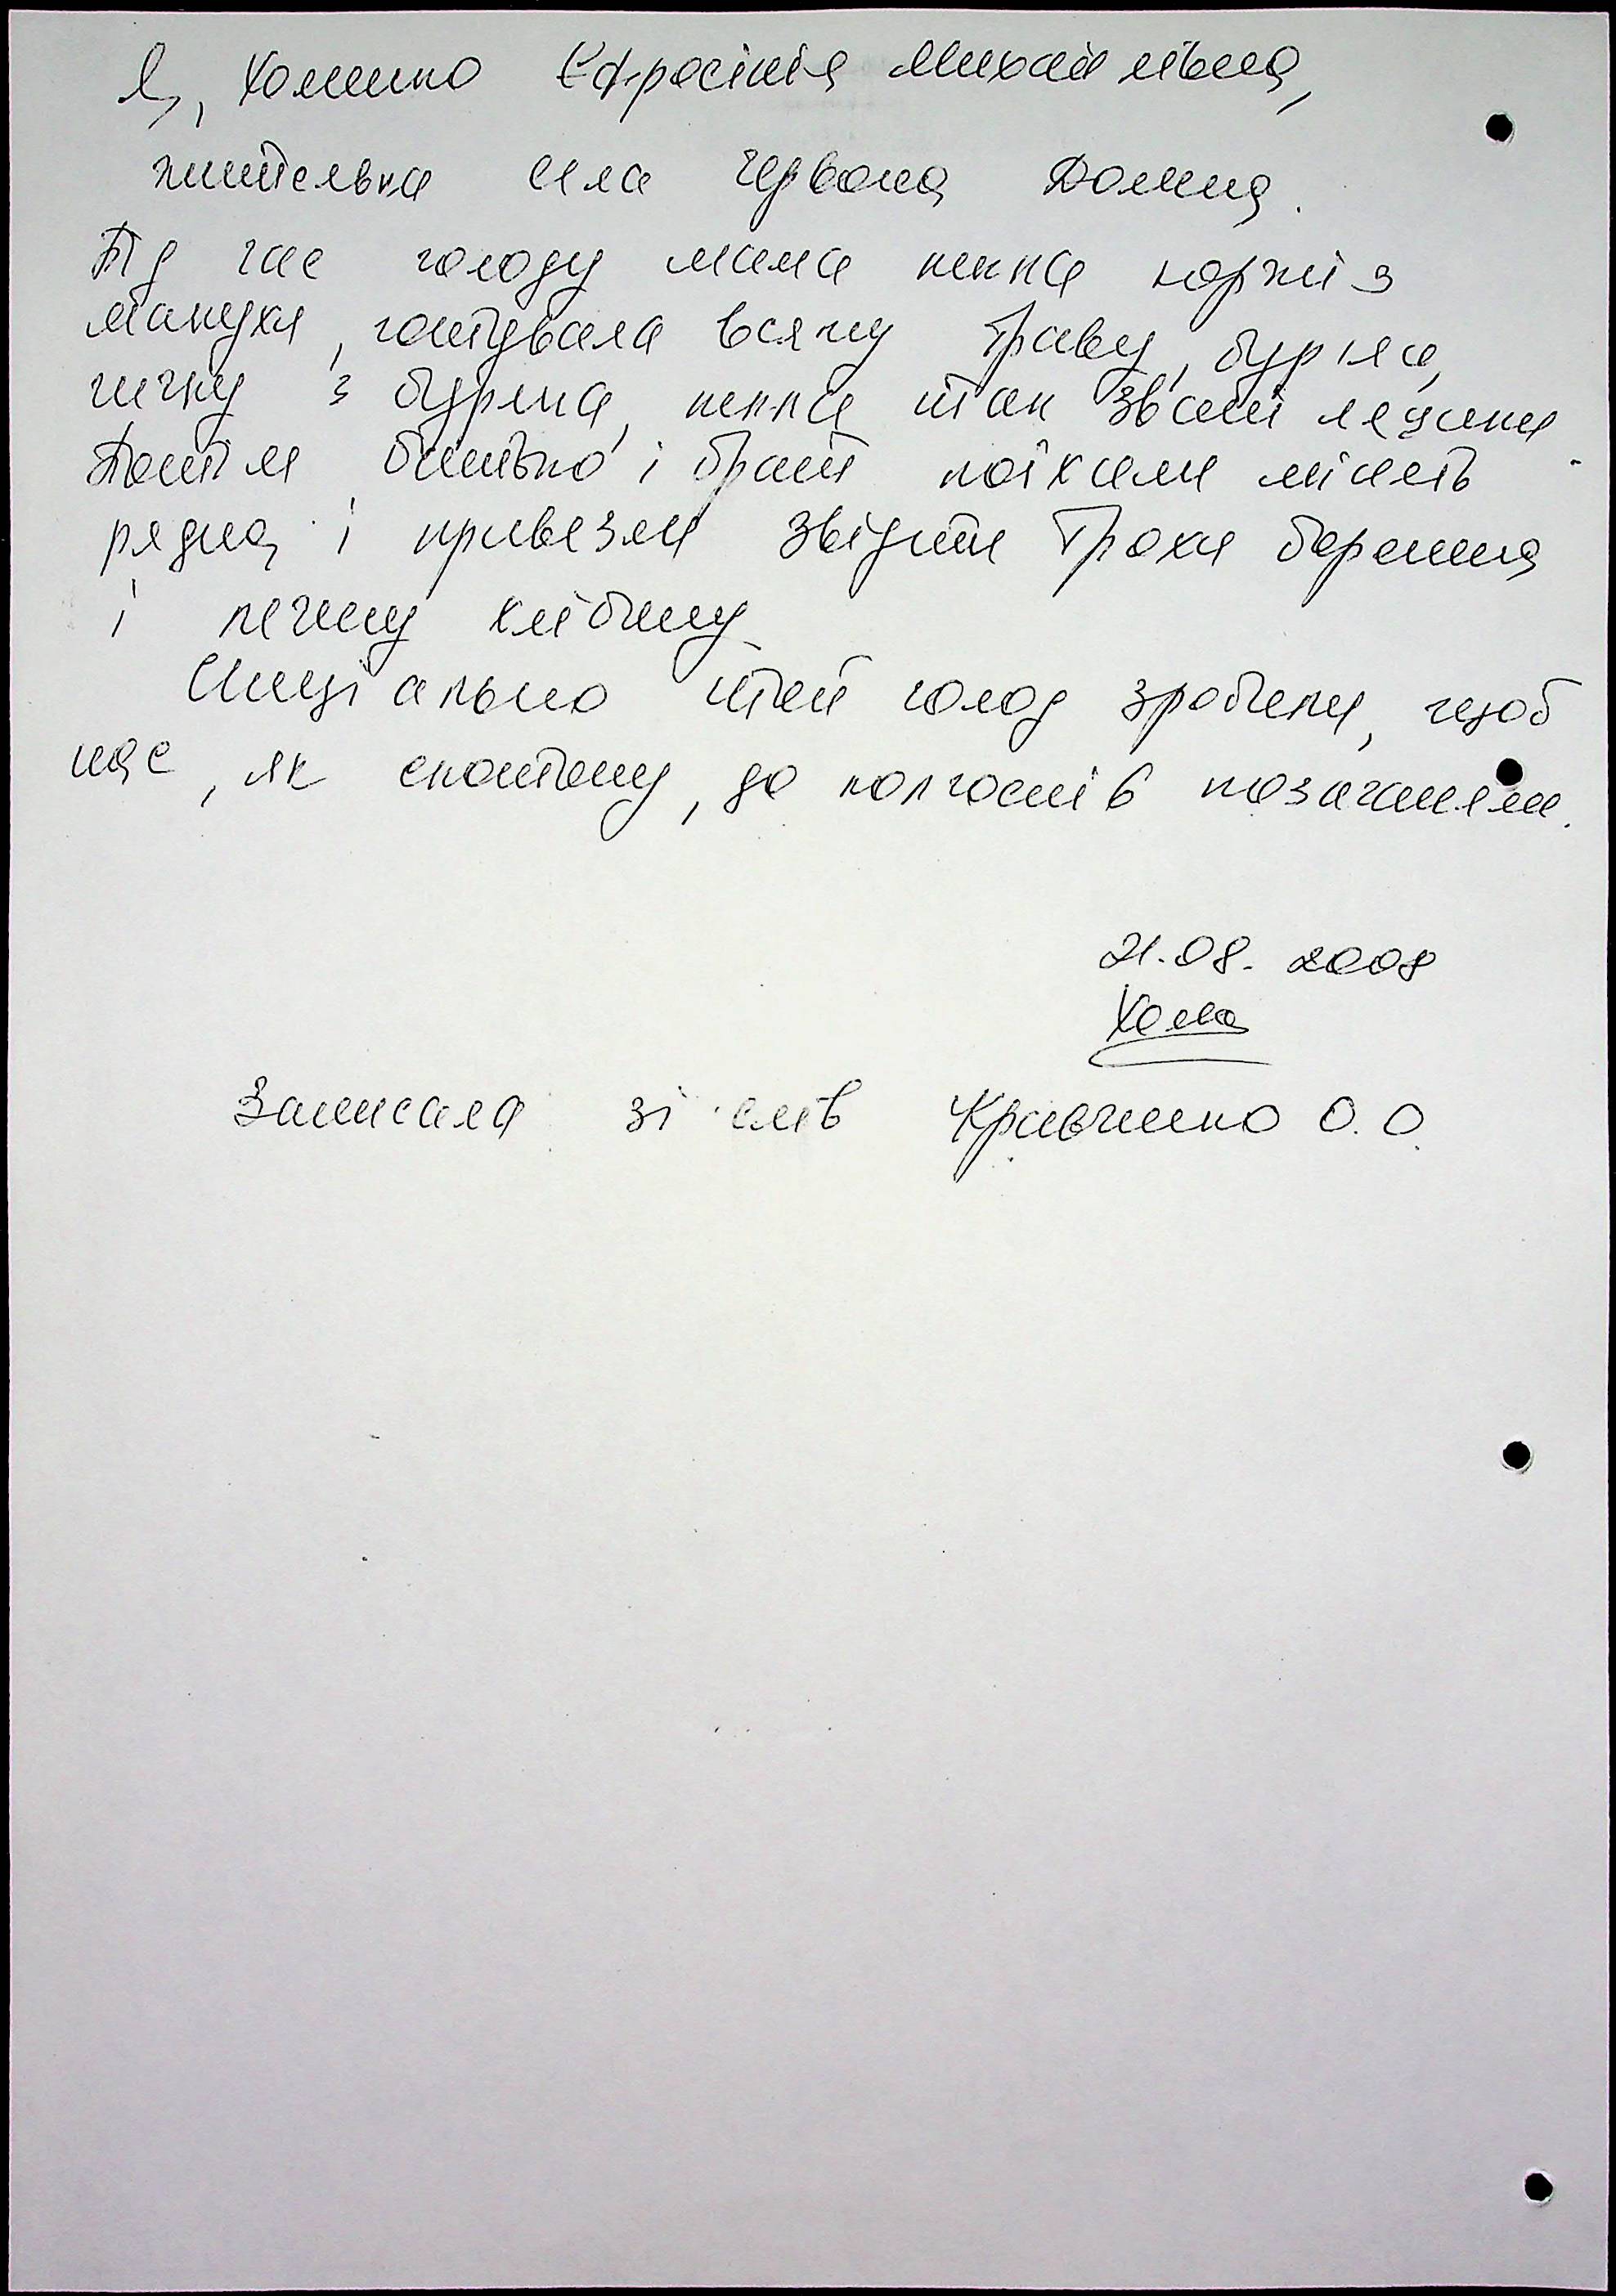 Я, Хоменко Єфросінія Михайлівна,
жителька села Червона Долина.
Під час голоду мама пекла коржі з
макухи, готувала всяку траву, буряк,
гичку з буряка, пекла так звані ляпики.
Потім батько і брат поїхали мінять
рядна і привезли звідти трохи борошна
і печену хлібину
Спеціально цей голод зробили, щоб
нас, як скотину, до колгоспів позаганяли.
21.08.2008
Хоме
Записала зі слів Кравченко О.О.